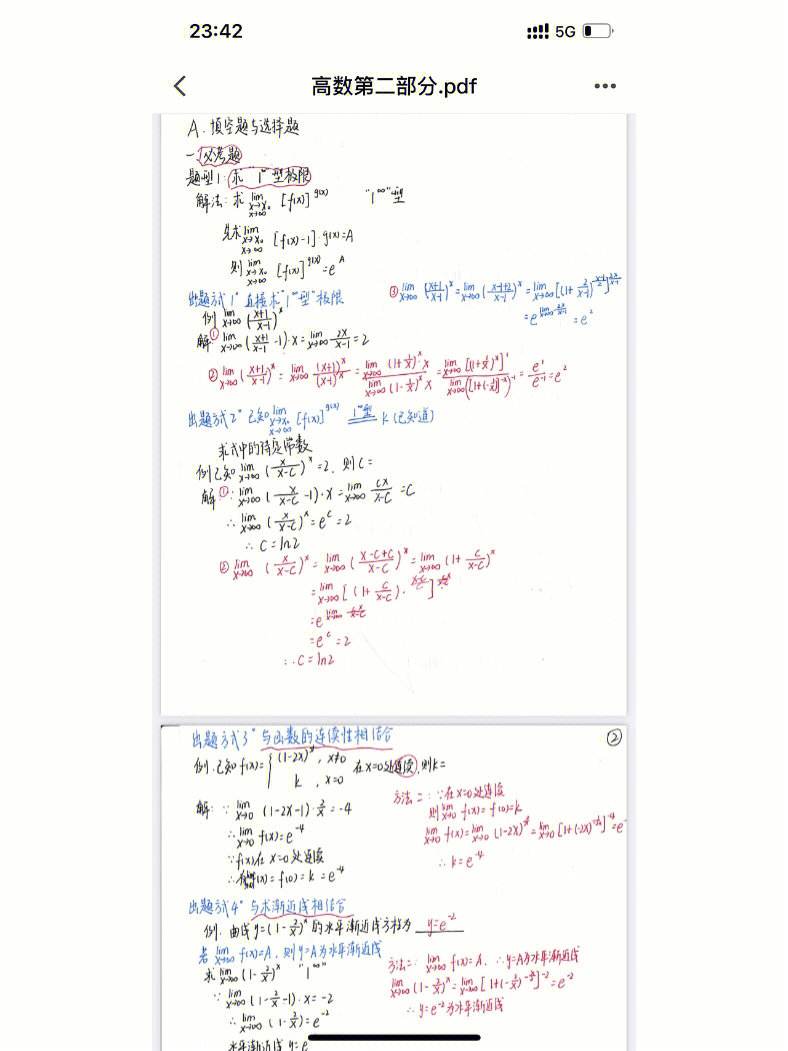 23:42 5G
高数第二部分.pdf
A. 填空题与选择题
一. 必考题
题型1: 求"1^∞"型极限
解法: 求 lim x→x₀ x→∞ [f(x)]^g(x) "1^∞"型
先求 lim x→x₀ x→∞ [f(x)-1]·g(x)=A
则 lim x→x₀ x→∞ [f(x)]^g(x)=e^A
出题方式1° 直接求"1^∞型"极限
例 lim x→∞ (x+1/x-1)^x
解: ① lim x→∞ (x+1/x-1 -1)·x = lim x→∞ 2x/x-1 = 2
③ lim x→∞ (x+1/x-1)^x = lim x→∞ (x-1+2/x-1)^x = lim x→∞ [(1+2/x-1)^x-1/2]^2x/x-1
= e^lim x→∞ 2x/x-1 = e²
② lim x→∞ (x+1/x-1)^x = lim x→∞ (x+1)^x/(x-1)^x = lim x→∞ (1+1/x)^x·x / lim x→∞ (1-1/x)^x x = lim x→∞ [(1+1/x)^x]^1 / lim x→∞ ([1+(-1/x)]^-x)^-1 = e^1/e^-1 = e²
出题方式2° 已知 lim x→x₀ x→∞ [f(x)]^g(x) 1^∞型 k (已知道)
求式中的待定常数
例 已知 lim x→∞ (x/x-c)^x =2, 则 c=
解 ①: lim x→∞ (x/x-c -1)·x = lim x→∞ cx/x-c = c
∴ lim x→∞ (x/x-c)^x = e^c = 2
∴ c=ln2
② lim x→∞ (x/x-c)^x = lim x→∞ (x-c+c/x-c)^x = lim x→∞ (1+c/x-c)^x
= lim x→∞ [(1+c/x-c)·^x-c/c]^cx/x-c
= e^lim x→∞ cx/x-c
= e^c = 2
∴ c=ln2
②
出题方式3° 与函数的连续性相结合
例. 已知 f(x)={ (1-2x)^2/x, x≠0
k , x=0 在x=0处连续, 则k=
解: ∵ lim x→0 (1-2x-1)·2/x = -4
∴ lim x→0 f(x)=e^-4
∵ f(x)在 x=0 处连续
f(x)=f(0)=k=e^-4
方法二: ∵ 在x=0处连续
则 lim x→0 f(x)=f(0)=k
lim x→0 f(x)= lim x→0 (1-2x)^2/x = lim x→0 [1+(-2x)^-1/2x]^-4 = e
∴ k=e^-4
出题方式4° 与求渐近线相结合
例. 曲线 y=(1-2/x)^x 的水平渐近线方程为 y=e^-2
若 lim x→∞ f(x)=A, 则 y=A为水平渐近线
求 lim x→∞ (1-2/x)^x "1^∞"
∵ lim x→∞ (1-2/x-1)·x=-2
∴ lim x→∞ (1-2/x)=e^-2
水平渐近线 y=e
方法二: lim x→∞ f(x)=A, ∴ y=A为水平渐近线
lim x→∞ (1-2/x)^x = lim x→∞ [1+(-2/x)^-x/2]^-2 = e^-2
∴ y=e^-2 为水平渐近线